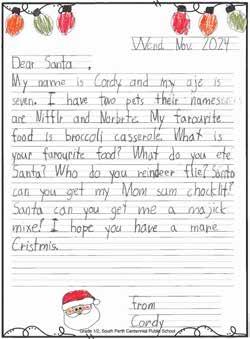 Wend Nov. 2024
Dear Santa,
My name is Cordy and my aje is
seven. I have two pets their names
are Nifflr and Norbrte. My favourite
food is broccoli casserole. What is
your favourite food? What do you ete
Santa? Who do you reindeer flie? Santa
can you get my Mom sum chocklit?
Santa can you get me a majick
mixe! I hope you have a mare
Cristmis.
from
Cordy
Grade 1/2, South Perth Centennial Public School